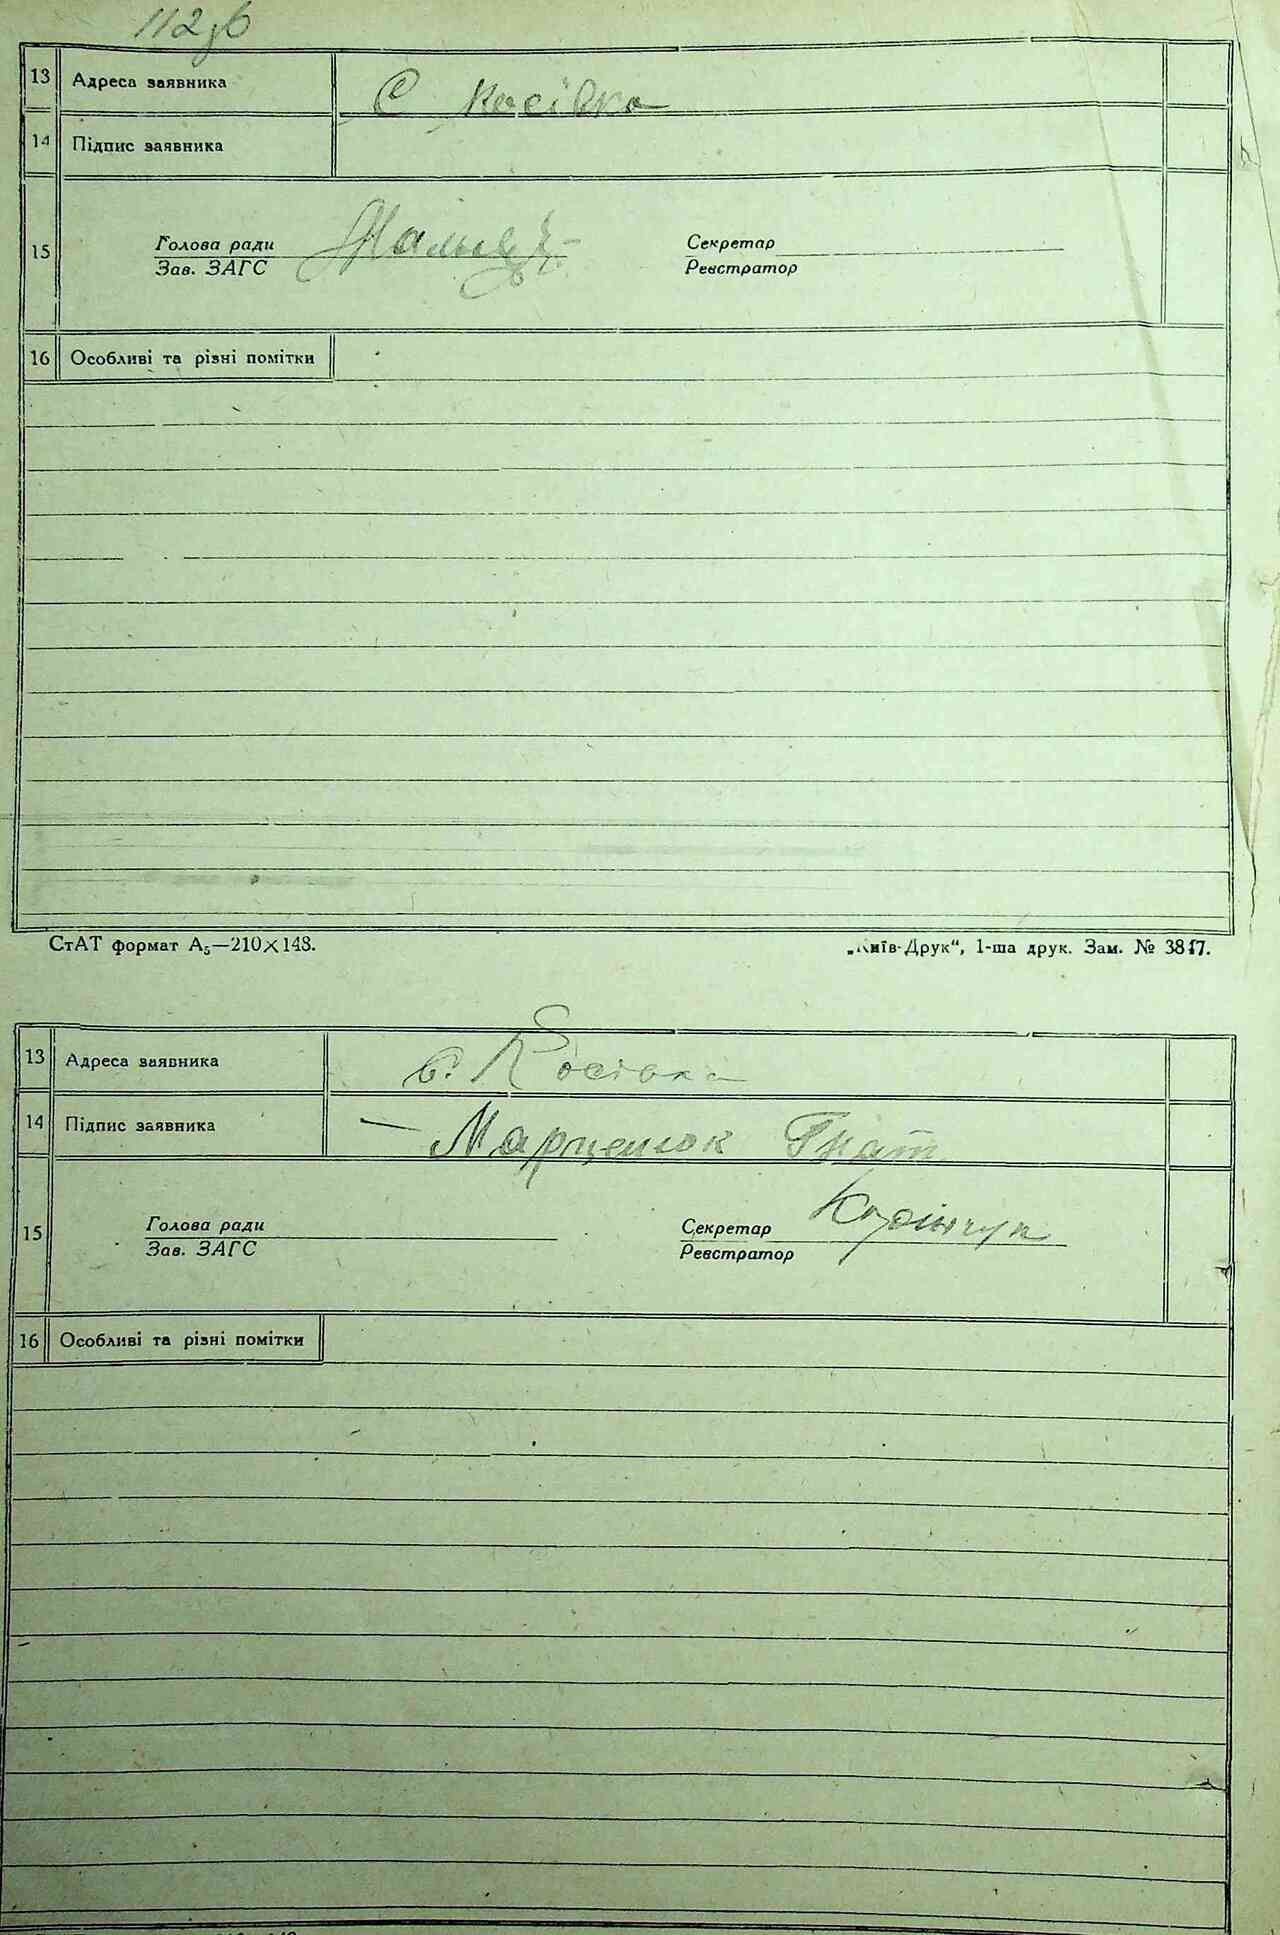 112зв
13 Адреса заявника С Косівка
14 Підпис заявника
15 Голова ради Секретар
Зав. ЗАГС Реєстратор
16 Особливі та різні помітки
СтАТ формат А5—210×148. „Київ-Друк“, 1-ша друк. Зам. № 3817.
13 Адреса заявника с. Косівка
14 Підпис заявника — Марценюк Гнат
15 Голова ради Секретар
Зав. ЗАГС Реєстратор
16 Особливі та різні помітки